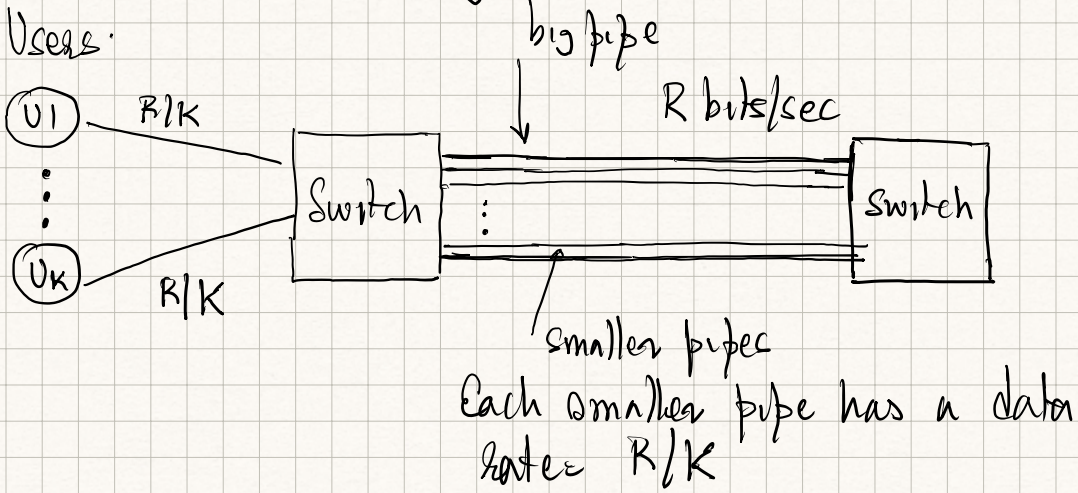 Users.
big pipe
R bits/sec
U1
R/K
Switch
Switch
UK
R/K
smaller pipes
Each smaller pipe has a data
rate= R/K